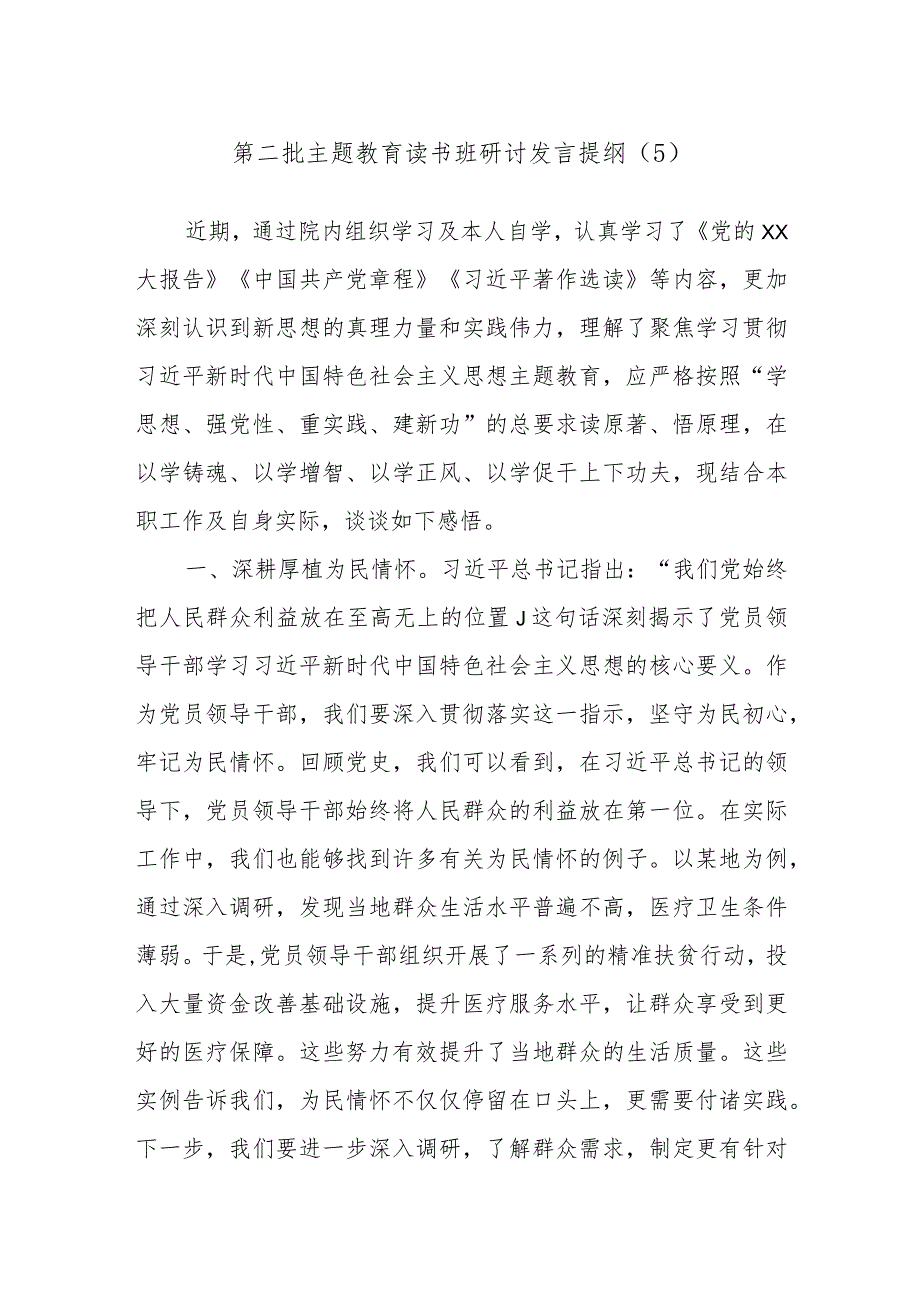 第二批主题教育读书班研讨发言提纲（5）
近期，通过院内组织学习及本人自学，认真学习了《党的 XX
大报告》《中国共产党章程》《习近平著作选读》等内容，更加
深刻认识到新思想的真理力量和实践伟力，理解了聚焦学习贯彻
习近平新时代中国特色社会主义思想主题教育，应严格按照“学
思想、强党性、重实践、建新功”的总要求读原著、悟原理，在
以学铸魂、以学增智、以学正风、以学促干上下功夫，现结合本
职工作及自身实际，谈谈如下感悟。
一、深耕厚植为民情怀。习近平总书记指出：“我们党始终
把人民群众利益放在至高无上的位置 J 这句话深刻揭示了党员领
导干部学习习近平新时代中国特色社会主义思想的核心要义。作
为党员领导干部，我们要深入贯彻落实这一指示，坚守为民初心，
牢记为民情怀。回顾党史，我们可以看到，在习近平总书记的领
导下，党员领导干部始终将人民群众的利益放在第一位。在实际
工作中，我们也能够找到许多有关为民情怀的例子。以某地为例，
通过深入调研，发现当地群众生活水平普遍不高，医疗卫生条件
薄弱。于是,党员领导干部组织开展了一系列的精准扶贫行动，投
入大量资金改善基础设施，提升医疗服务水平，让群众享受到更
好的医疗保障。这些努力有效提升了当地群众的生活质量。这些
实例告诉我们，为民情怀不仅仅停留在口头上，更需要付诸实践。
下一步，我们要进一步深入调研，了解群众需求，制定更有针对